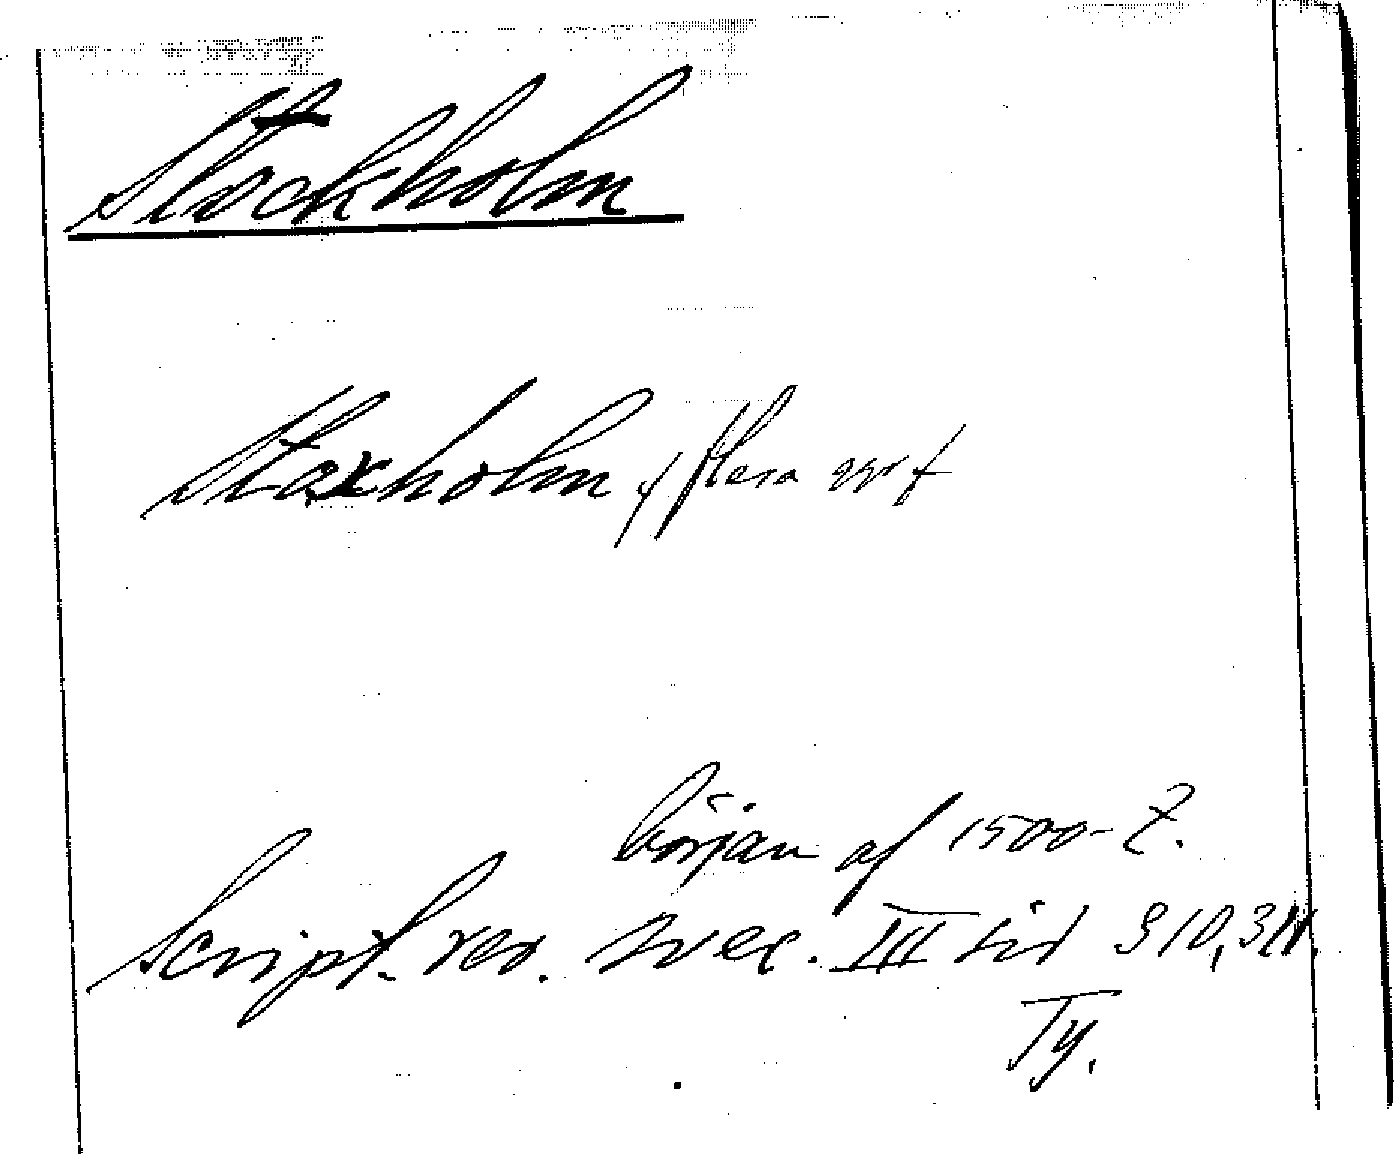 Stockholm
Staxholm, flera ggr
början af 1500-t.
Script. rer. svec. III sid 310, 311.
Ty.